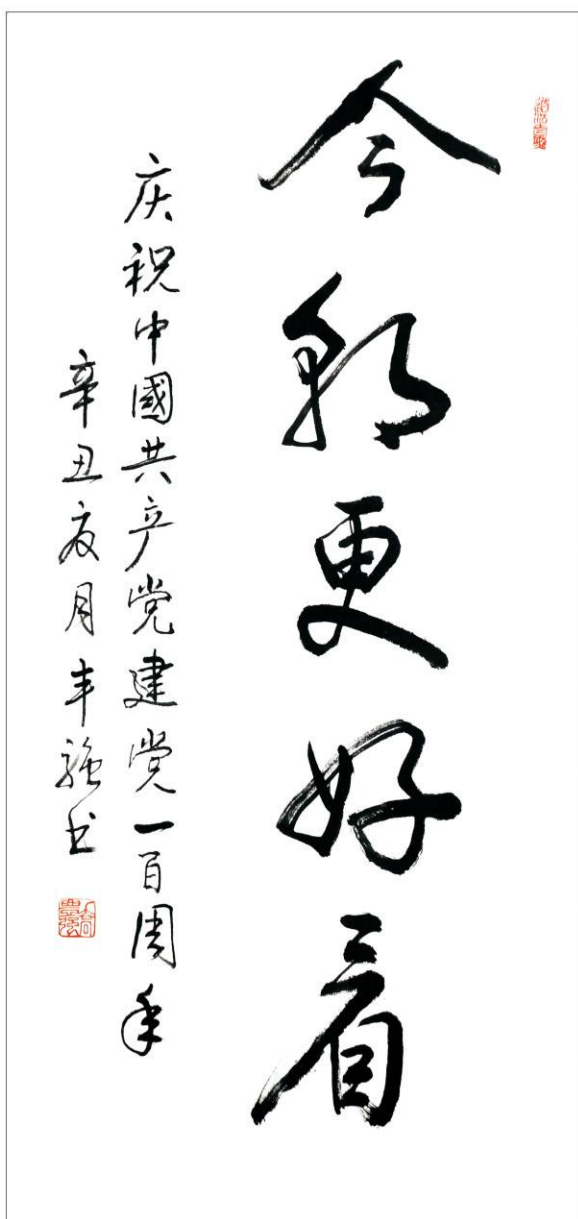 今朝更好看
庆祝中國共产党建党一百周年
辛丑夏月丰強书